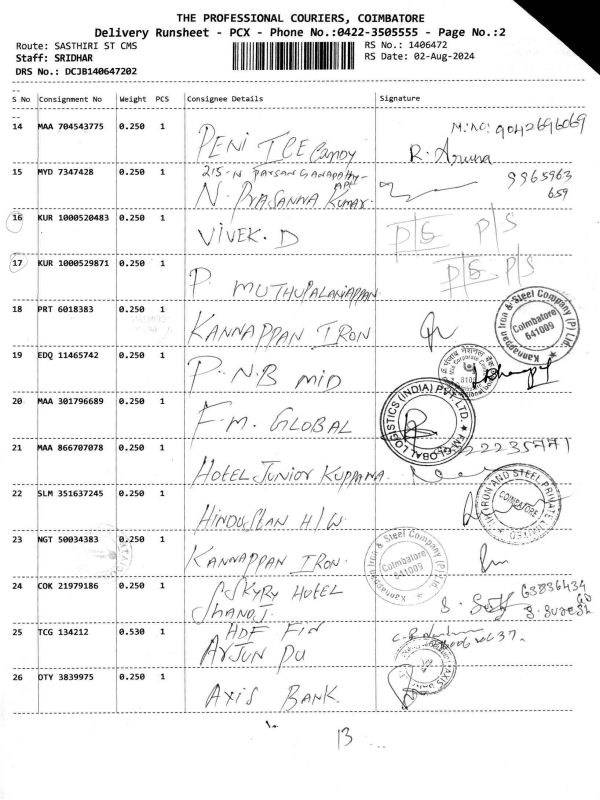 THE PROFESSIONAL COURIERS, COIMBATORE
Delivery Runsheet - PCX - Phone No.:0422-3505555 - Page No.:2
Route: SASTHIRI ST CMS
RS No.: 1406472
Staff: SRIDHAR
RS Date: 02-Aug-2024
DRS No.: DCJB140647202
S No Consignment No Weight PCS Consignee Details Signature
14 MAA 704543775 0.250 1 PENI ICE Candy M.NO: 9042696069
R. Aruna
15 MYD 7347428 0.250 1 215-N
N. PRASANNA KUMAR 9965963
659
16 KUR 1000520483 0.250 1 VIVEK. D P/S P/S
17 KUR 1000529871 0.250 1 P. MUTHUPALANIAPPAN P/S P/S
18 PRT 6018383 0.250 1 KANNAPPAN IRON
Kannappan Iron & Steel Company (P) Ltd.
Coimbatore
641009
19 EDQ 11465742 0.250 1 P.N.B MID
20 MAA 301796689 0.250 1 F.M. GLOBAL
FM-GLOBAL LOGISTICS (INDIA) PVT. LTD.
21 MAA 866707078 0.250 1 HOTEL JUNIOR KUPPANNA
22 SLM 351637245 0.250 1 HINDUSTAN H/W.
IRON AND STEEL PRIVATE LIMITED
COIMBATORE
23 NGT 50034383 0.250 1 KANNAPPAN IRON.
Kannappan Iron & Steel Company (P) Ltd.
Coimbatore
641009
24 COK 21979186 0.250 1 SKYRY HOTEL
SHANO.J. 63836434
S. SURESH
25 TCG 134212 0.530 1 HDF FIN
ARJUN DU
26 OTY 3839975 0.250 1 AXIS BANK.
AXIS
13